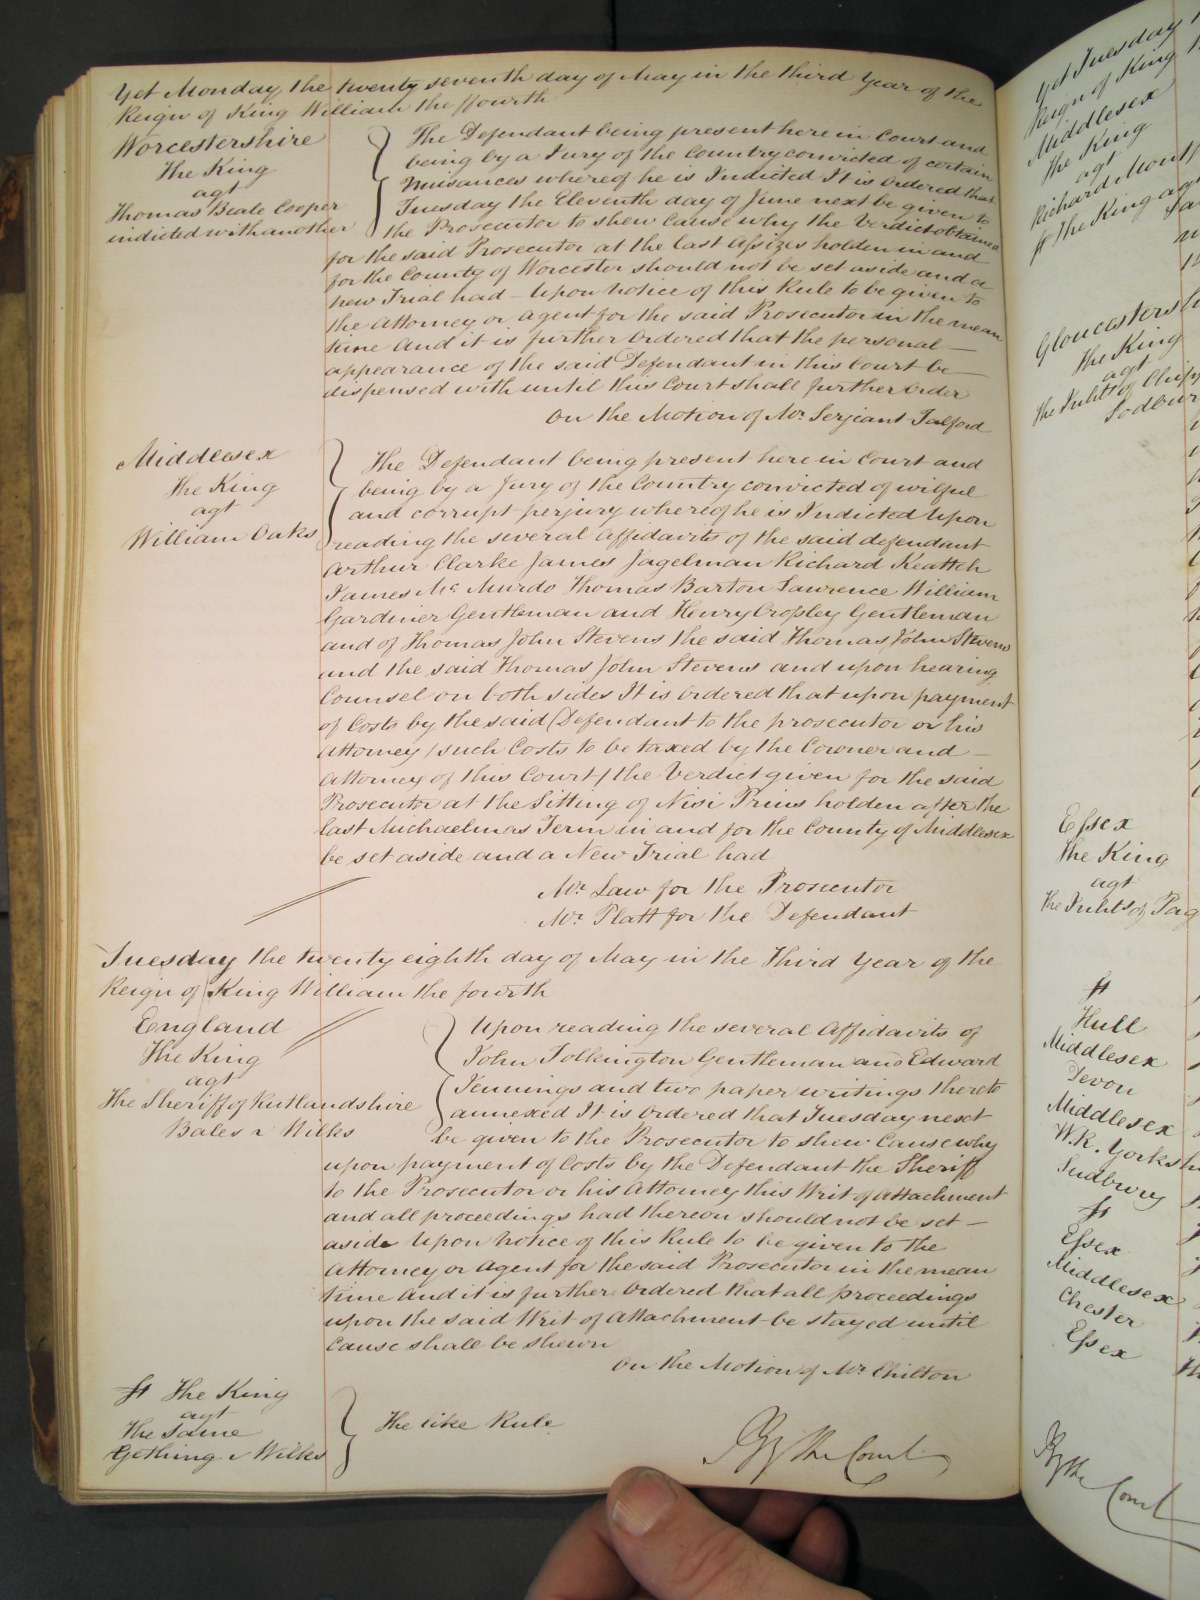 Yet Monday the twenty seventh day of May in the third Year of the
Reign of King William the ffourth
Worcestershire
The King
agt
Thomas Beale Cooper
indicted with another
The Defendant being present here in Court and
being by a Jury of the Country convicted of certain
Nuisances whereof he is Indicted It is Ordered that
Tuesday the Eleventh day of June next be given to
the Prosecutor to shew Cause why the Verdict obtained
for the said Prosecutor at the last Assizes holden in and
for the County of Worcester should not be set aside and a
new Trial had – Upon notice of this Rule to be given to
the Attorney or Agent for the said Prosecutor in the mean
time And it is further Ordered that the personal –
appearance of the said Defendant in this Court be –
dispensed with until this Court shall further Order
On the Motion of Mr. Serjeant Talford
Middlesex
The King
agt
William Oaks
The Defendant being present here in Court and
being by a Jury of the Country convicted of wilful
and corrupt perjury whereof he is Indicted Upon
reading the several Affidavits of the said defendant
Arthur Clarke James Jagelman Richard Keattch
James Mc Murdo Thomas Barton Lawrence William
Gardiner Gentleman and Henry Crossley Gentleman
and of Thomas John Stevens the said Thomas John Stevens
and the said Thomas John Stevens and upon hearing
Counsel on both sides It is Ordered that upon payment
of Costs by the said Defendant to the prosecutor or his
Attorney / such Costs to be taxed by the Coroner and –
Attorney of this Court / the Verdict given for the said
Prosecutor at the Sitting of Nisi Prius holden after the
last Michaelmas Term in and for the County of Middlesex
be set aside and a New Trial had
Mr. Law for the Prosecutor
Mr. Platt for the Defendant
Tuesday the twenty eighth day of May in the Third Year of the
Reign of King William the fourth
England
The King
agt
The Sheriff of Rutlandshire
Bales v Wilks
Upon reading the several Affidavits of
John Tolkington Gentleman and Edward
Jennings and two paper writings thereto
annexed It is Ordered that Tuesday next
be given to the Prosecutor to shew Cause why
upon payment of Costs by the Defendant the Sheriff
to the Prosecutor or his Attorney this Writ of Attachment
and all proceedings had thereon should not be set –
aside Upon Notice of this Rule to be given to the
Attorney or Agent for the said Prosecutor in the mean
time And it is further Ordered that all proceedings
upon the said Writ of Attachment be stayed until
Cause shall be shewn
On the Motion of Mr. Chilton
The King
agt
The Same
Gething v Wilks
The like Rule
By the Court
Yet Tuesday
Reign of King
Middlesex
The King
agt
Richard
The King agt
Gloucestersh
The King
agt
the Inhts of Chip
Sodbur
Essex
The King
agt
the Inhts of Pag
Hull
Middlesex
Devon
Middlesex
W.R. Yorksh
Sudbury
Essex
Middlesex
Chester
Essex
By the Court